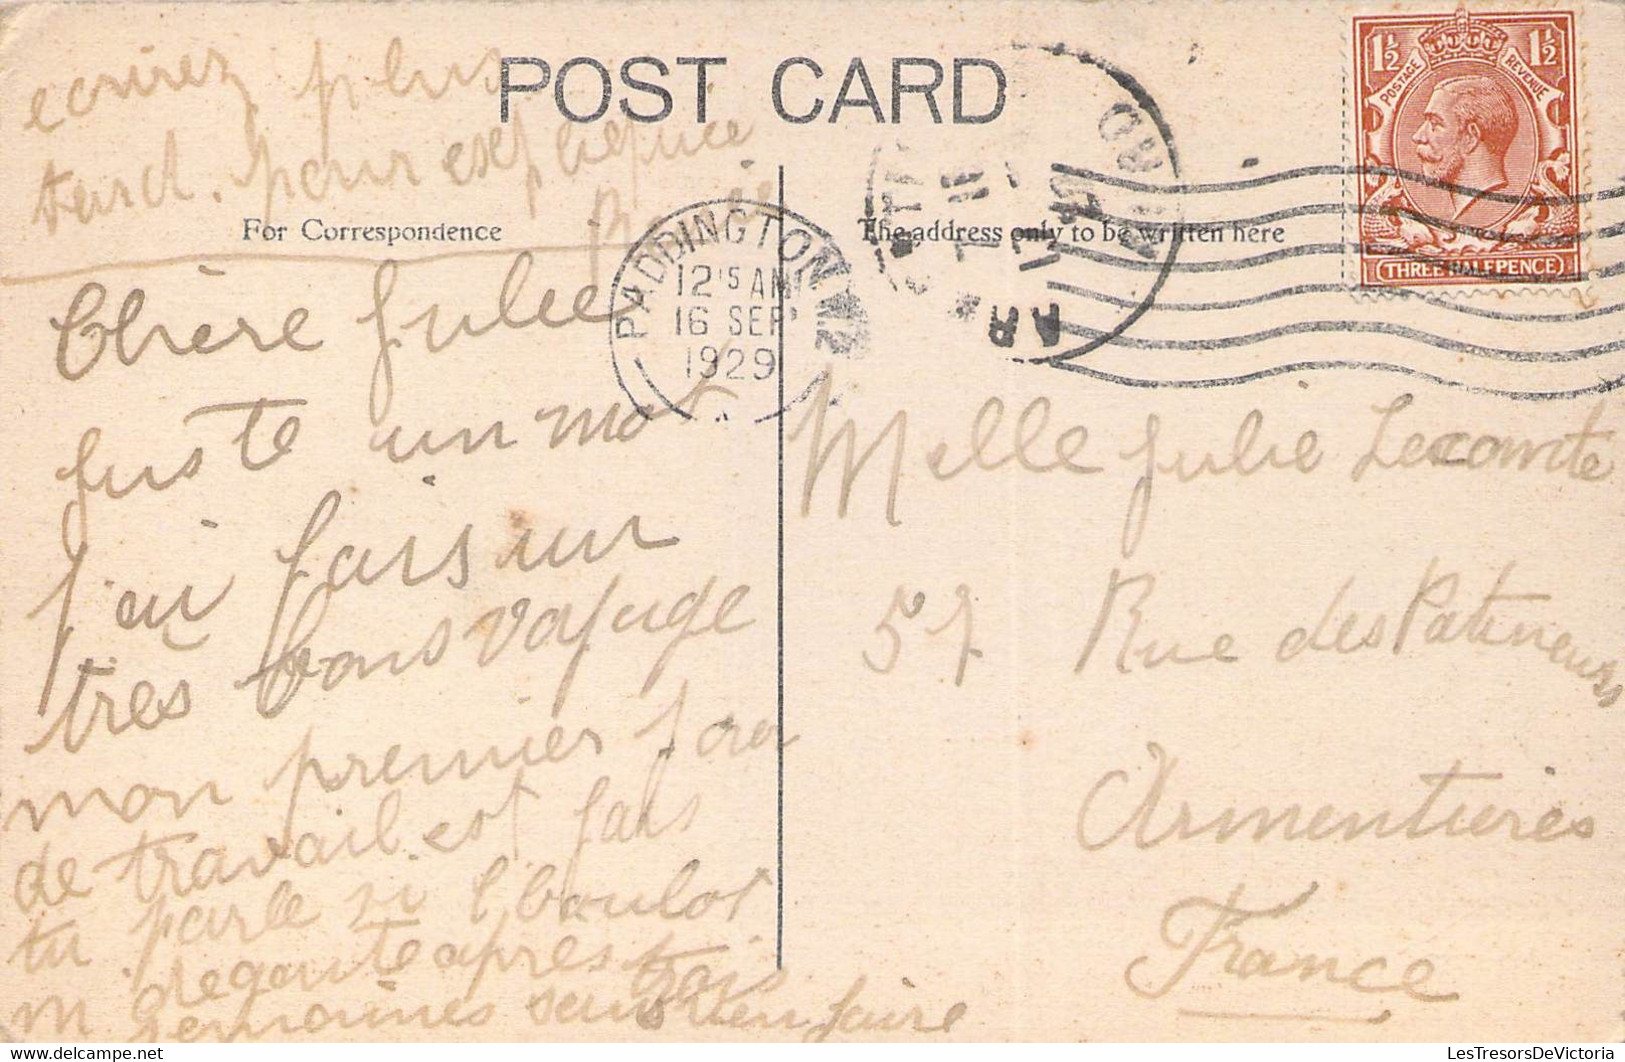 POST CARD
For Correspondence
The address only to be written here
1½ POSTAGE REVENUE 1½
THREE HALFPENCE
PADDINGTON W2
12 15 AM
16 SEP
1929
ecrirez plus
tard. pour
Chère Julie
juste un mot
j'ai fais un
tres bons voyage
mon premier
de travail est fais
tu parle si l boulot
m degoute apres trois
semaines sans rien faire
Melle Julie Lecomte
57 Rue des Patineurs
Armentieres
France
LesTresorsDeVictoria